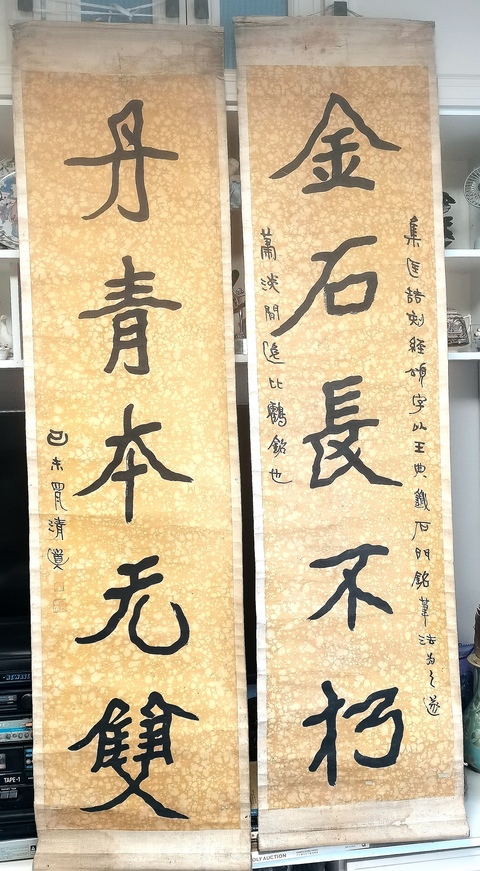 金石長不朽
集匡喆刻經頌字以王典鐵石門銘筆法為之遂
蕭淡閒逸比鶴銘也
丹青本无雙
己未清
TAPE-1
AUCTION